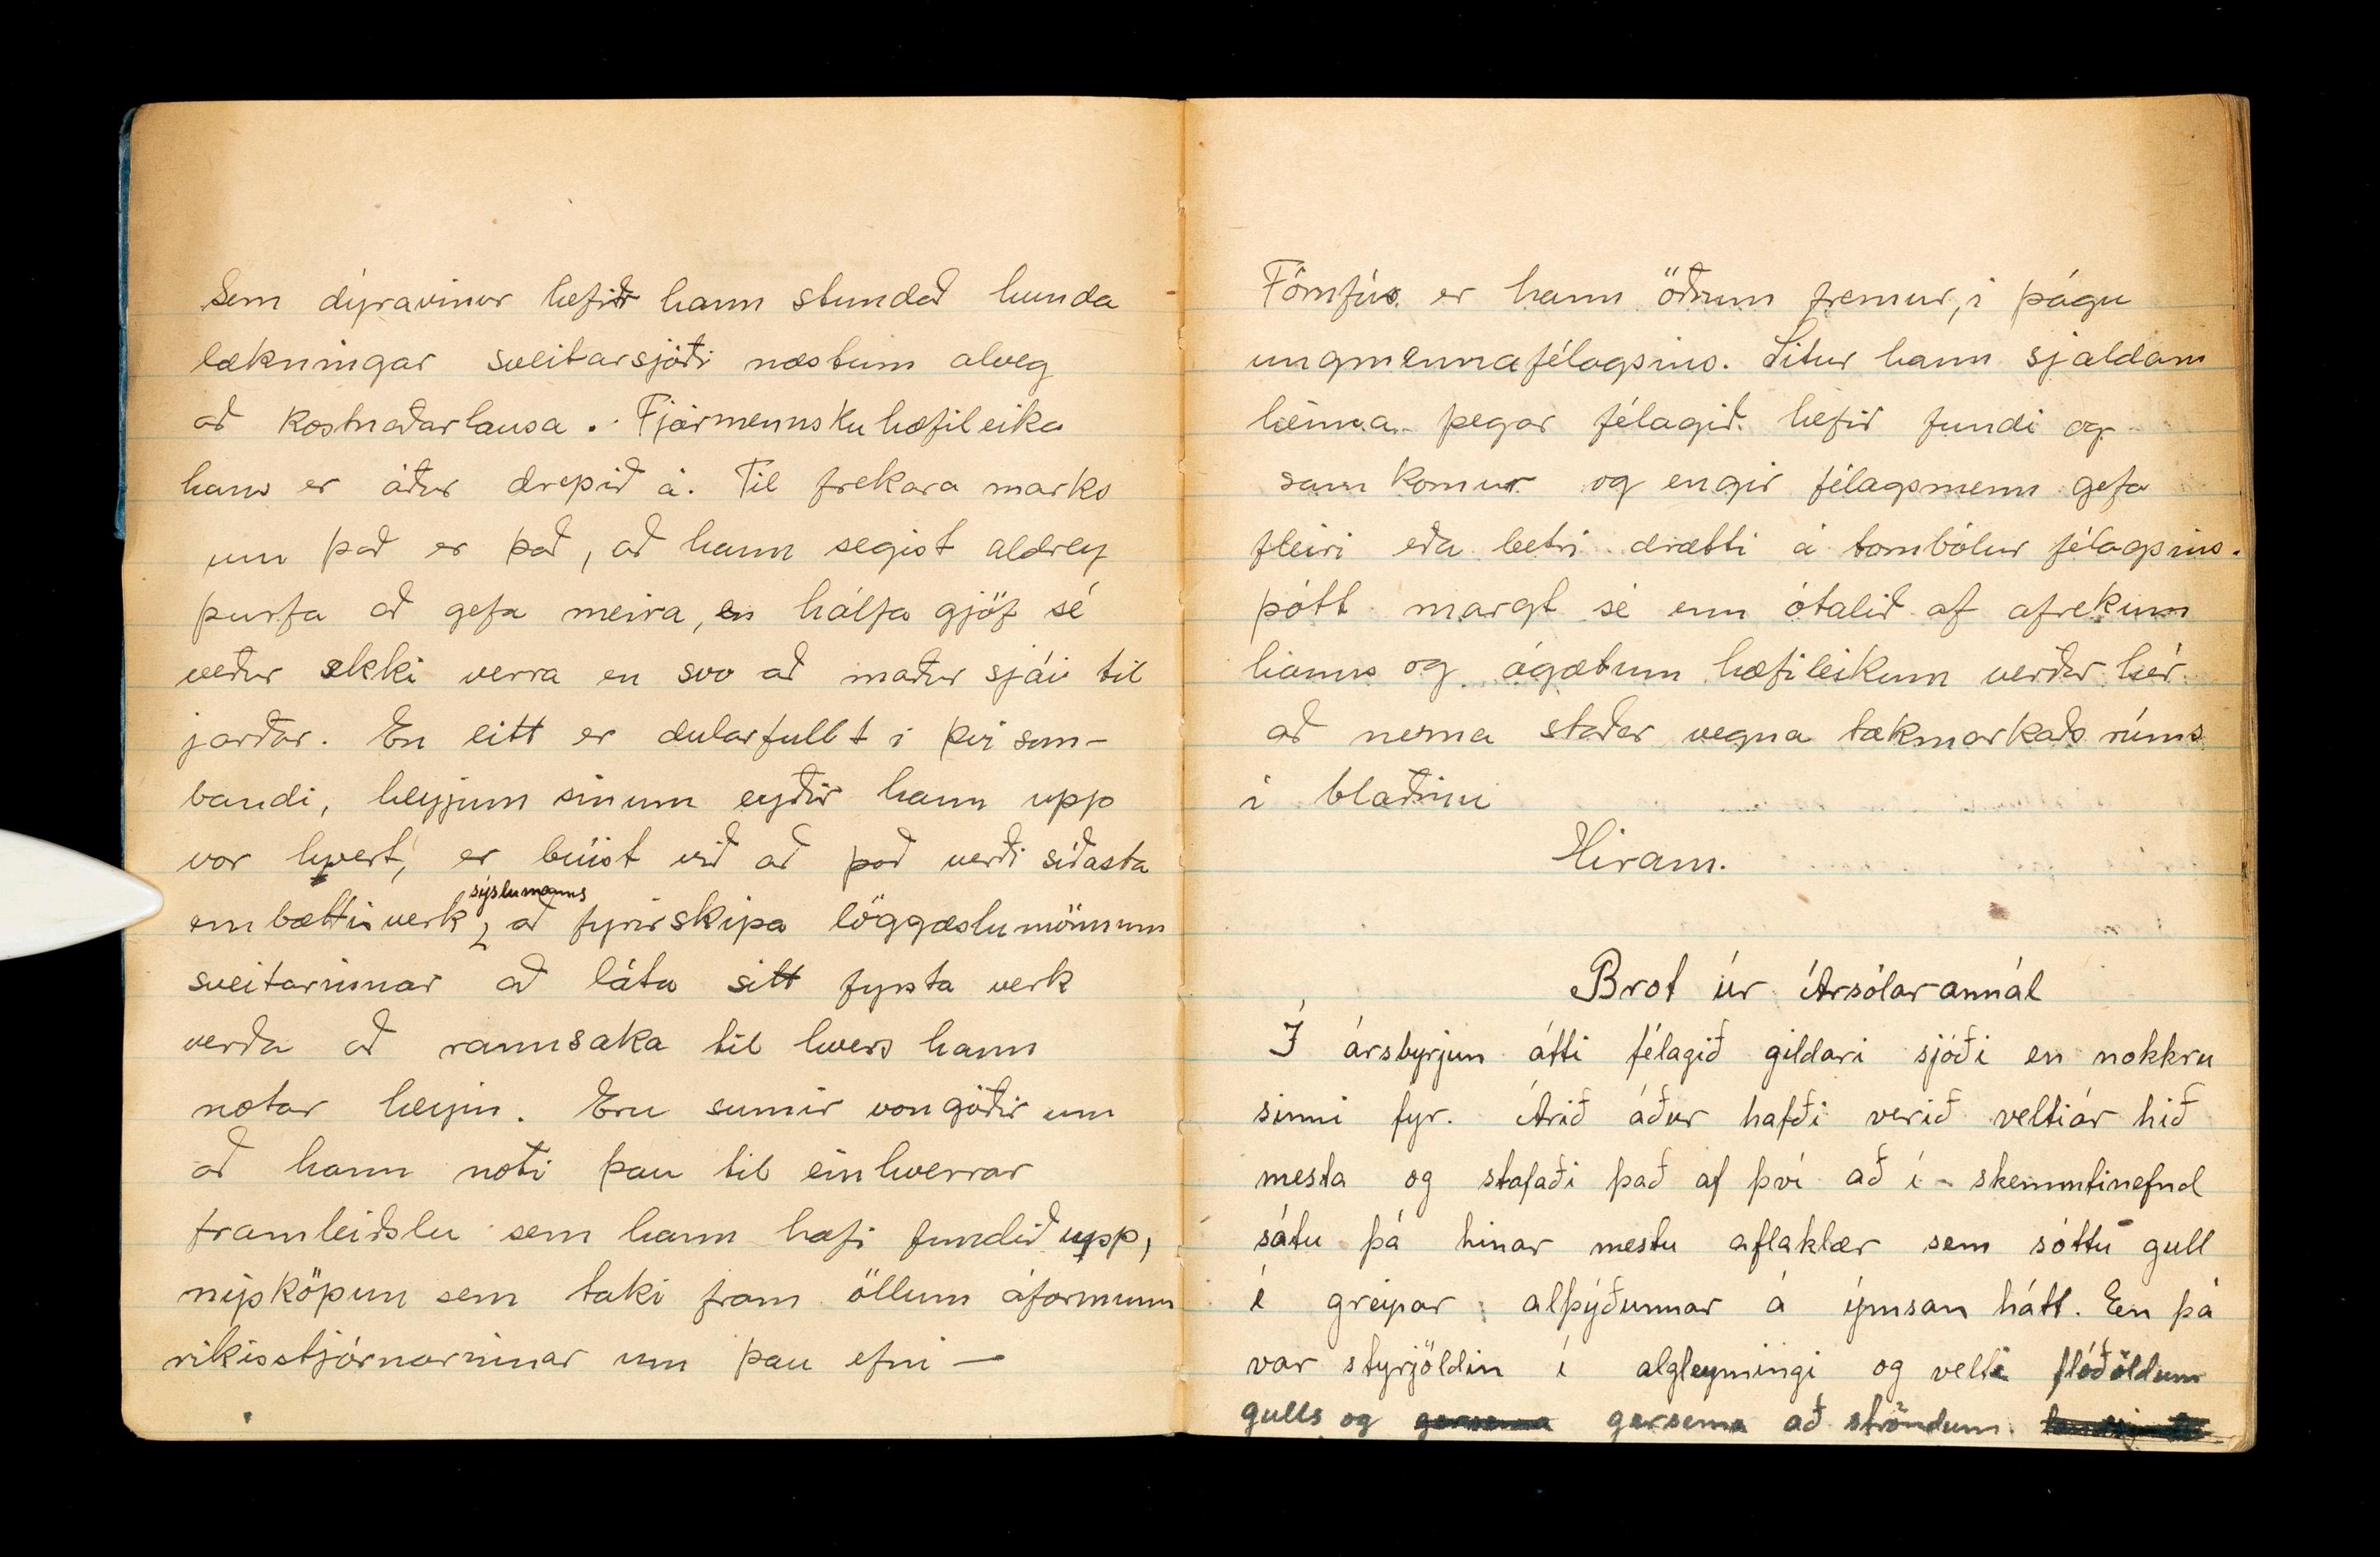 Sem dýravinur hefir hann stundað hunda
lækningar sveitarsjóði næstum alveg
að kostnaðarlausu. Fjármennsku hæfileika
hans er áður drepið á. Til frekara marks
um það er það, að hann segist aldrey
þurfa að gefa meira, en hálfa gjöf sé
veður ekki verra en svo að maður sjái til
jarðar. En eitt er dularfullt í því sam-
bandi, heyjum sínum eyðir hann upp
vor hvert, er búist við að það verði síðasta
embættisverk sýslumanns, að fyrirskipa löggæslumönnum
sveitarinnar að láta sitt fyrsta verk
verða að rannsaka til hvers hann
notar heyin. Eru sumir vongóðir um
að hann noti þau til einhverrar
framleiðslu sem hann hafi fundið upp,
nýsköpun sem taki fram öllum áformum
ríkisstjórnarinnar um þau efni —
Fórnfús er hann öðrum fremur, í þágu
ungmennafélagsins. Situr hann sjaldan
heima þegar félagið hefir fundi og
samkomur og engir félagsmenn gefa
fleiri eða betri drætti á tombólur félagsins.
þótt margt sé enn ótalið af afrekum
hans og ágætum hæfileikum verður hér
að nema staðar vegna takmarkaðs rúms
í blaðinu
Hiram.
Brot úr Ársólarannál
Í ársbyrjun átti félagið gildari sjóði en nokkru
sinni fyr. Árið áður hafði verið veltiár hið
mesta og stafaði það af því að í skemmtinefnd
sátu þá hinar mestu aflaklær sem sóttu gull
í greipar alþýðunnar á ýmsan hátt. En þá
var styrjöldin í algleymingi og velti flóðöldum
gulls og gersema gersema að ströndum